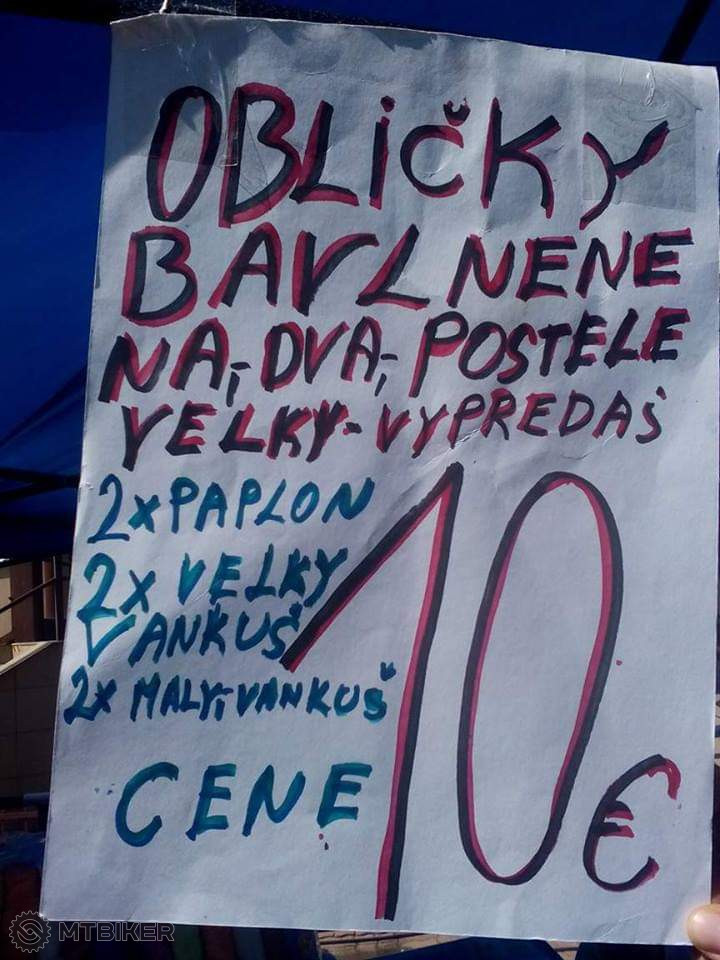 OBLiČKY
BAVLNENE
NA,DVA, POSTELE
VELKY-VYPREDAŠ
2xPAPLON
2x VELKY
VANKUŠ
2x MALY,VANKUŠ
CENE
10€
MTBIKER